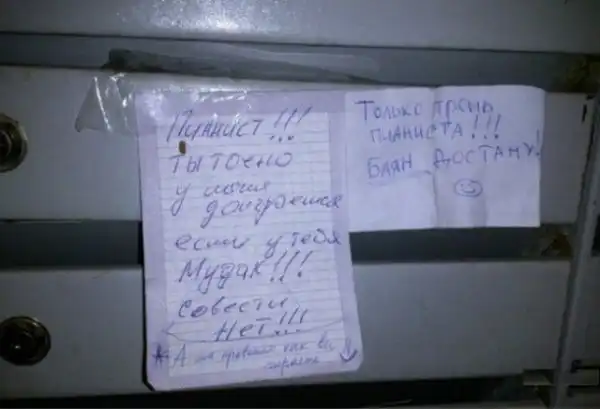 Пианист!!!
ты точно
у меня
доиграешся
если у тебя
Мудак!!!
совести
НЕТ!!!
А не нравится как вы
играете
Только тронь
пианиста!!!
Баян достану!